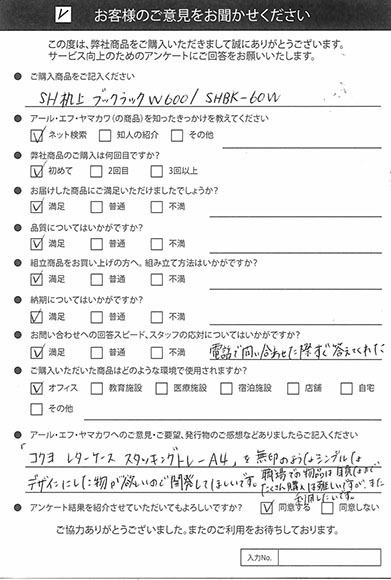 お客様のご意見をお聞かせください
この度は、弊社商品をご購入いただきまして誠にありがとうございます。
サービス向上のためのアンケートにご回答をお願いいたします。
● ご購入商品をご記入ください
SH机上ブックラックW600/SHBK-60W
● アール・エフ・ヤマカワ(の商品)を知ったきっかけを教えてください
ネット検索 知人の紹介 その他
● 弊社商品のご購入は何回目ですか?
初めて 2回目 3回以上
● お届けした商品にご満足いただけましたでしょうか?
満足 普通 不満
● 品質についてはいかがですか?
満足 普通 不満
● 組立商品をお買い上げの方へ。組み立て方法はいかがですか?
満足 普通 不満
● 納期についてはいかがですか?
満足 普通 不満
● お問い合わせへの回答スピード、スタッフの応対についてはいかがですか?
満足 普通 不満 電話で問い合わせた際すぐ答えてくれた
● ご購入いただいた商品はどのような環境で使用されますか?
オフィス 教育施設 医療施設 宿泊施設 店舗 自宅
その他
● アール・エフ・ヤマカワへのご意見・ご要望、発行物のご感想などありましたらご記入ください
「コクヨ レターケース スタッキングトレーA4」を無印のようなシンプルな
デザインにした物が欲しいので開発してほしいです。
職場での物品は
たくさん購入は難しいですが、また
利用したいです。
● アンケート結果を紹介させていただいてもよろしいですか? 同意する 同意しない
ご協力ありがとうございました。またのご利用をお待ちしております。
入力No.